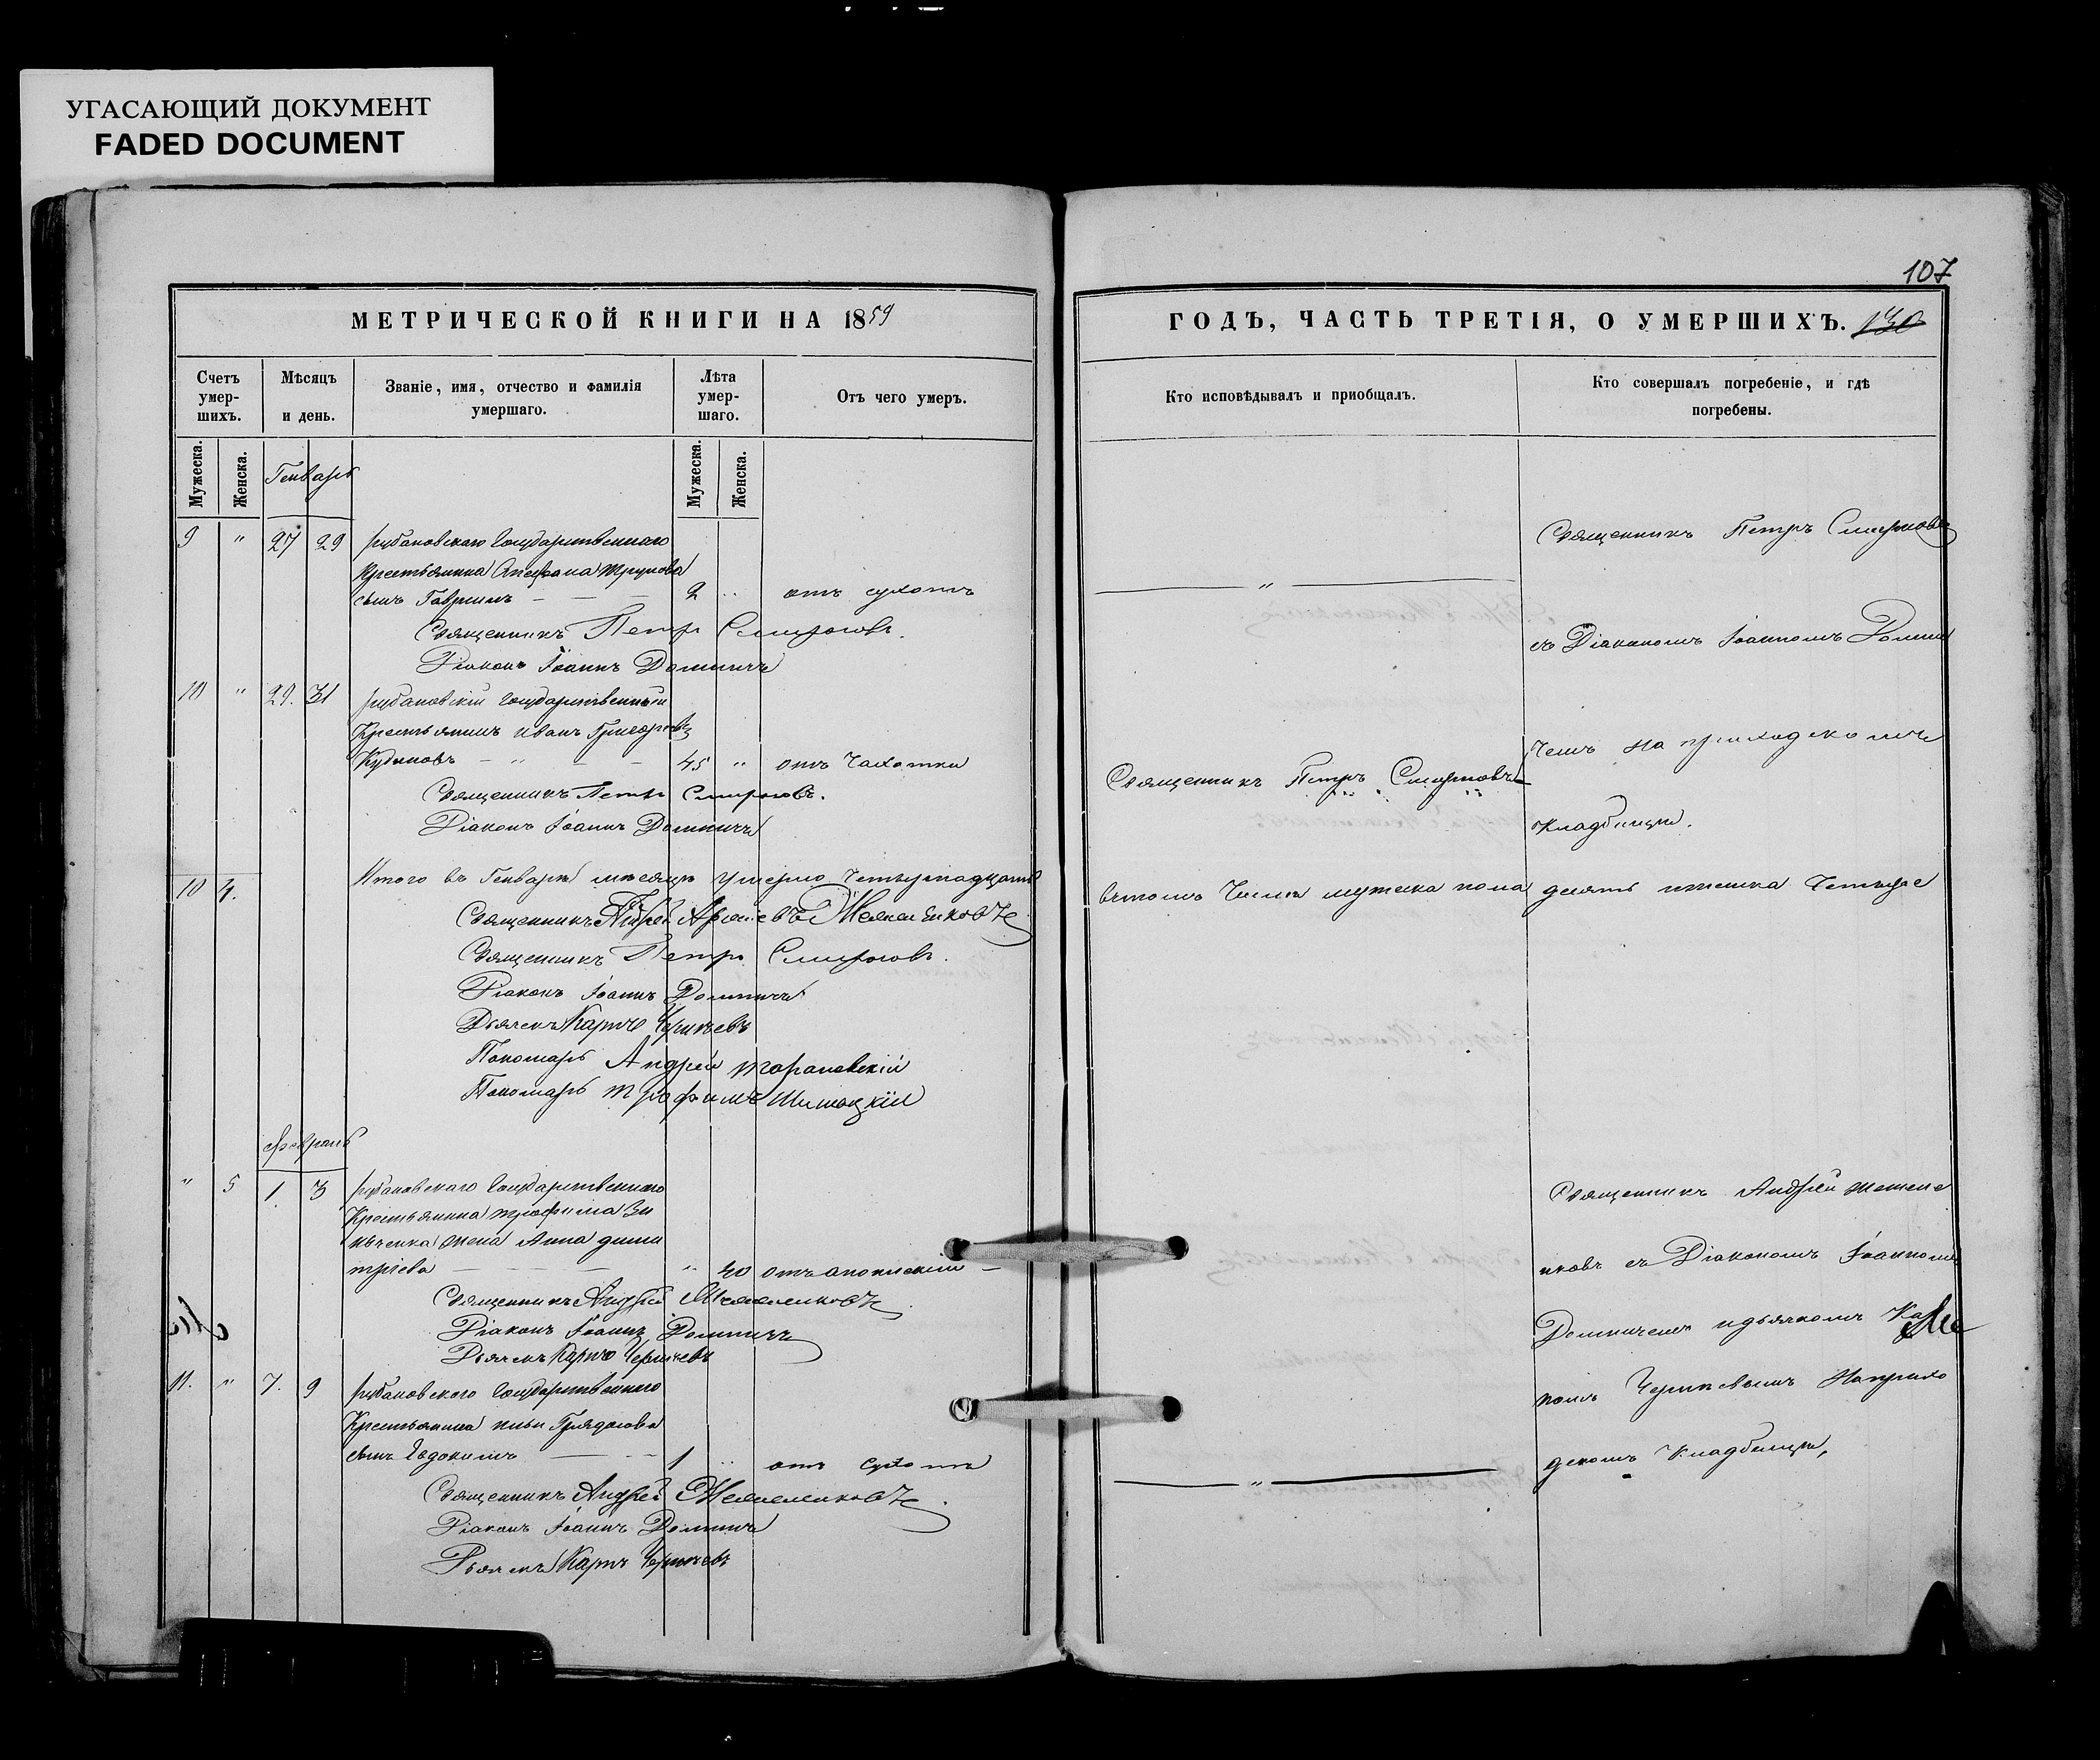 УГАСАЮЩИЙ ДОКУМЕНТ
FADED DOCUMENT
МЕТРИЧЕСКОЙ КНИГИ НА 1859
Счетъ умер-
шихъ.
Мѣсяцъ
и день.
Званіе, имя, отчество и фамилія
умершаго.
Лѣта
умер-
шаго.
Отъ чего умеръ.
Мужеска.
Женска.
Генварь
Мужеска.
Женска.
9 " 27 29 рубановскаго Государственнаго
Крестьянина
сынъ Гавріилъ 2 " отъ сухотъ
Священникъ Петръ Смирновъ.
Діаконъ Іоаннъ Доминичъ
10 " 29. 31 рубановскій Государственный
Крестьянинъ Иванъ Григорьевъ
Кудиновъ " 45 " отъ Чахотки
Священникъ Петръ Смирновъ.
Діаконъ Іоаннъ Доминичъ
10 4. Итого въ Генварѣ мѣсяцѣ умерло Четырнадцать
Священникъ Андрей
Священникъ Петръ Смирновъ.
Діаконъ Іоаннъ Доминичъ
Дьячекъ Карпъ
Пономарь Андрей Торановскій
Пономарь Трофимъ
Февраль
" 5 1. 3 рубановскаго Государственнаго
Крестьянина Трофима Зи
нченка жена Анна Дими
тріева " 40 отъ апоплексіи
Священникъ Андрей
Діаконъ Іоаннъ Доминичъ
Дьячекъ Карпъ
11. " 7. 9 рубановскаго Государственнаго
Крестьянина
сынъ Евдокимъ 1 " отъ сухотъ
Священникъ Андрей
Діаконъ Іоаннъ Доминичъ
Дьячекъ Карпъ
107
ГОДЪ, ЧАСТЬ ТРЕТІЯ, О УМЕРШИХЪ. 130
Кто исповѣдывалъ и пріобщалъ.
Кто совершалъ погребеніе, и гдѣ
погребены.
Священникъ Петръ Смирновъ
"
съ Діакономъ Іоанномъ Домини
чемъ на приходскомъ
Священникъ Петръ Смирновъ
кладбищѣ.
въ томъ Числѣ мужеска пола десять и женска Четыре
Священникъ Андрей
съ Діакономъ Іоанномъ
Доминичемъ и дьячкомъ Кар
помъ На прихо
"
дскомъ Кладбищѣ,